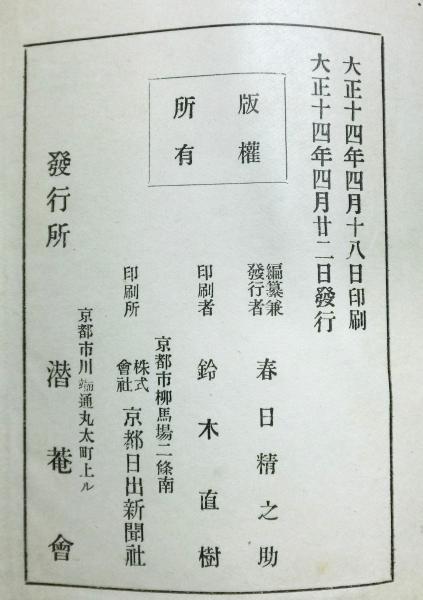 大正十四年四月十八日印刷
大正十四年四月廿二日發行
版權
所有
編纂兼
發行者
春日精之助
印刷者
鈴木直樹
京都市柳馬場二條南
印刷所
株式
會社
京都日出新聞社
京都市川端通丸太町上ル
發行所
潜菴會